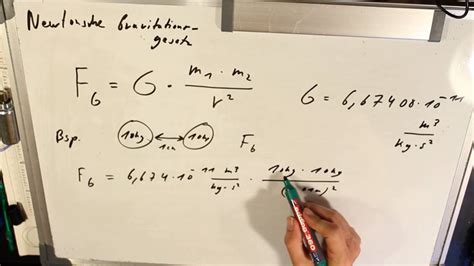 Newtonsche Gravitations-
gesetz
F_G = G · m₁ · m₂ / r²
G = 6,67408 · 10⁻¹¹ m³ / kg · s²
Bsp. 10kg 10kg F_G
1m
F_G = 6,674 · 10⁻¹¹ m³ / kg · s² · 10kg · 10kg / ( 01m)²